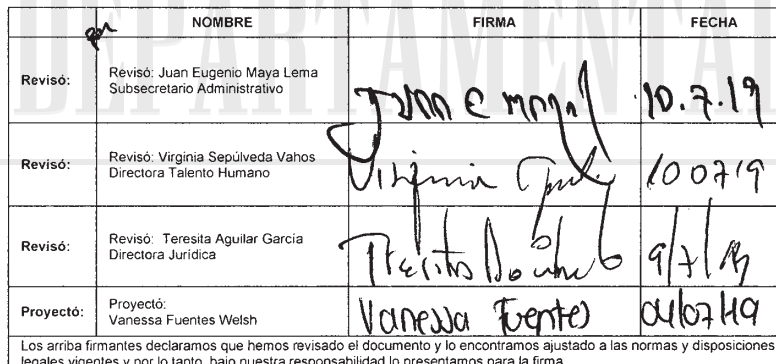 DEPARTAMENTAL
NOMBRE FIRMA FECHA
Revisó: Revisó: Juan Eugenio Maya Lema
Subsecretario Administrativo
Juan E Maya L 10.7.19
Revisó: Revisó: Virginia Sepúlveda Vahos
Directora Talento Humano
Virginia 10 07 19
Revisó: Revisó: Teresita Aguilar García
Directora Jurídica
Teresita 9/7/19
Proyectó: Proyectó:
Vanessa Fuentes Welsh
Vanessa Fuentes 04/07/19
Los arriba firmantes declaramos que hemos revisado el documento y lo encontramos ajustado a las normas y disposiciones
legales vigentes y por lo tanto, bajo nuestra responsabilidad lo presentamos para la firma